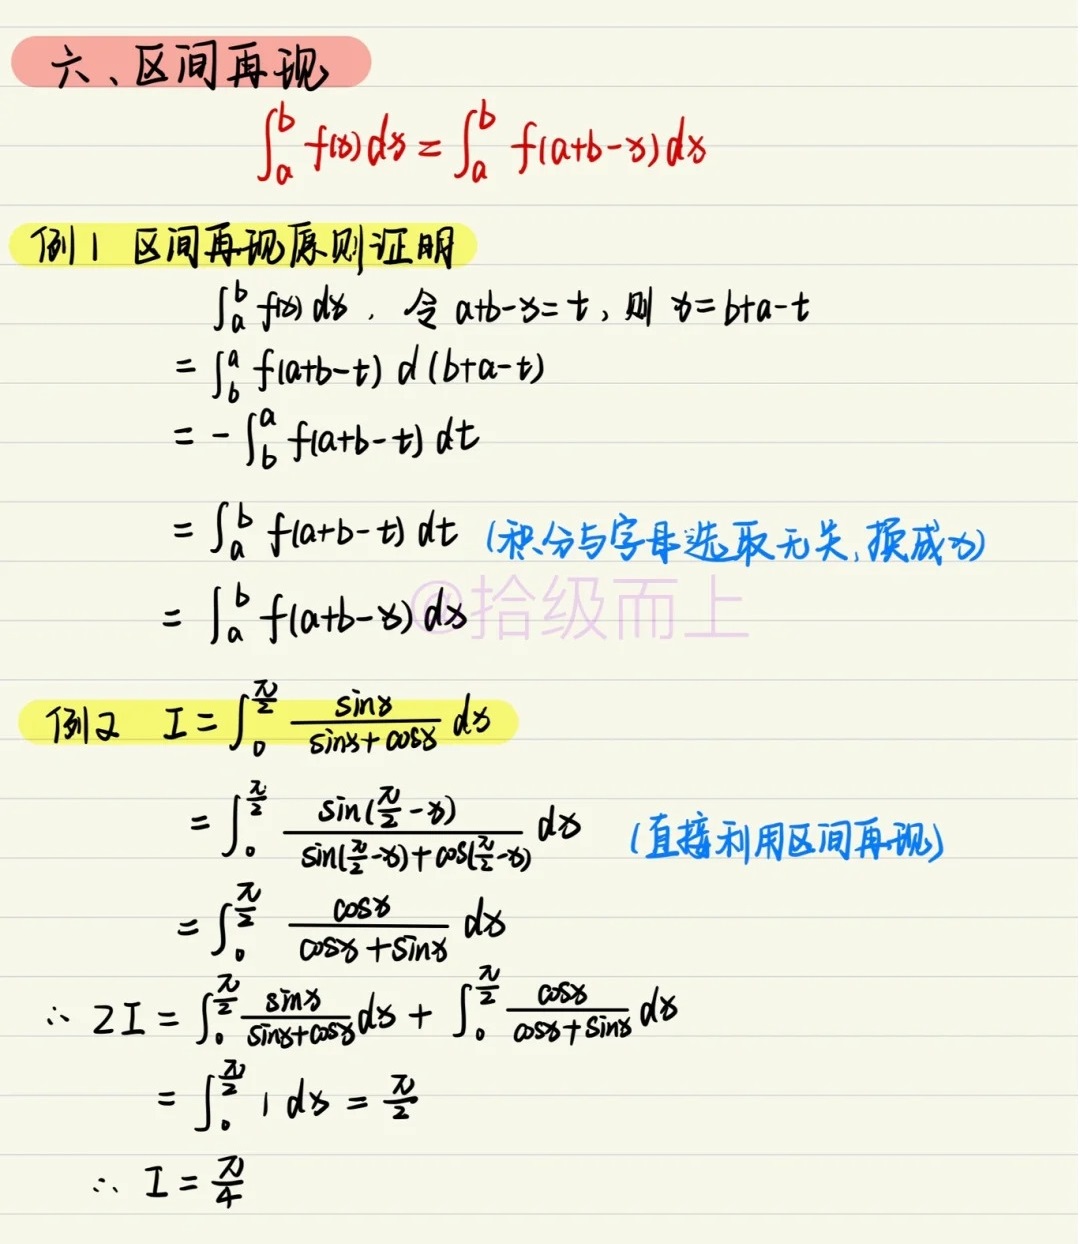 六、区间再现
∫_a^b f(x)dx = ∫_a^b f(a+b-x)dx
例1 区间再现原则证明
∫_a^b f(x)dx, 令 a+b-x=t, 则 x=b+a-t
= ∫_b^a f(a+b-t) d(b+a-t)
= -∫_b^a f(a+b-t)dt
= ∫_a^b f(a+b-t)dt (积分与字母选取无关,换成x)
= ∫_a^b f(a+b-x)dx
@拾级而上
例2 I = ∫_0^{π/2} sinx/(sinx+cosx) dx
= ∫_0^{π/2} sin(π/2-x)/(sin(π/2-x)+cos(π/2-x)) dx (直接利用区间再现)
= ∫_0^{π/2} cosx/(cosx+sinx) dx
∴ 2I = ∫_0^{π/2} sinx/(sinx+cosx) dx + ∫_0^{π/2} cosx/(cosx+sinx) dx
= ∫_0^{π/2} 1 dx = π/2
∴ I = π/4